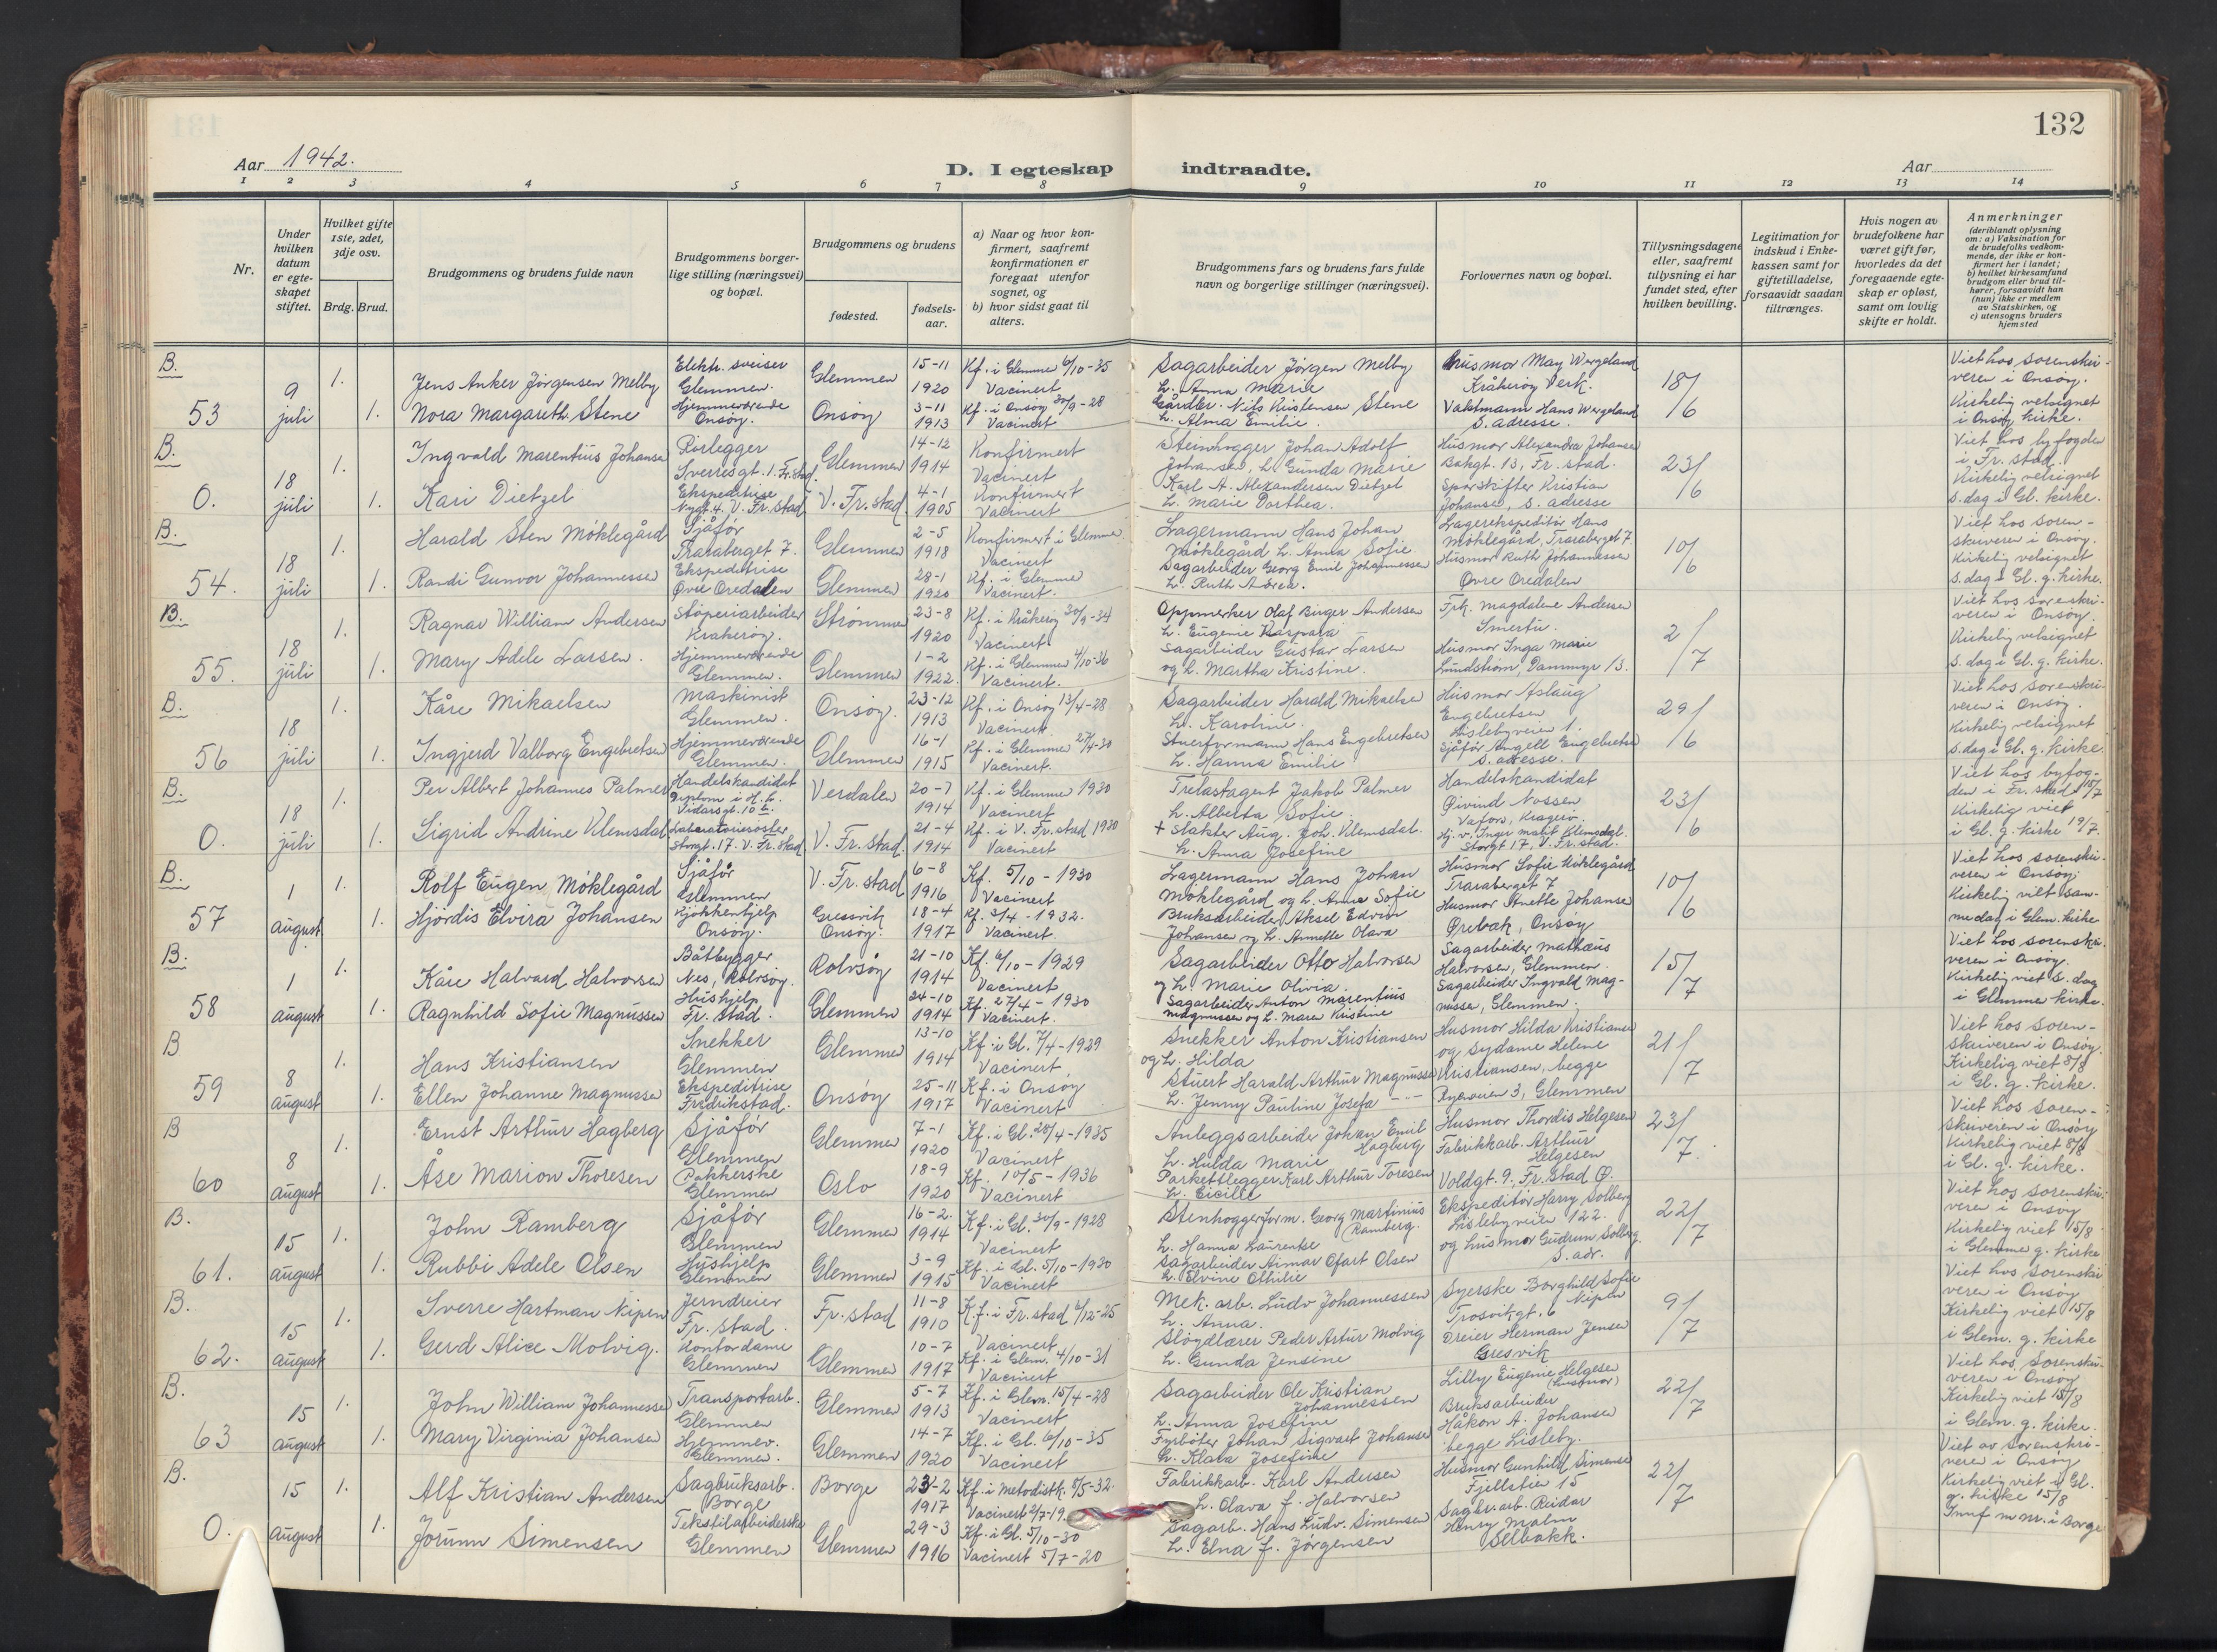 132
Aar 1942.
D. I egteskap indtraadte.
Aar
1 2 3 4 5 6 7 8 9 10 11 12 13 14
Nr.
Under hvilken datum er egte-skapet stiftet.
Hvilket gifte 1ste, 2det, 3dje osv.
Brdg. Brud.
Brudgommens og brudens fulde navn
Brudgommens borger-lige stilling (næringsvei) og bopæl.
Brudgommens og brudens
fødested.
fødsels-aar.
a) Naar og hvor kon-firmert, saafremt konfirmationen er foregaat utenfor sognet, og
b) hvor sidst gaat til alters.
Brudgommens fars og brudens fars fulde navn og borgerlige stillinger (næringsvei).
Forlovernes navn og bopæl.
Tillysningsdagene eller, saafremt tillysning ei har fundet sted, efter hvilken bevilling.
Legitimation for indskud i Enke-kassen samt for giftetilladelse, forsaavidt saadan tiltrænges.
Hvis nogen av brudefolkene har været gift før, hvorledes da det foregaaende egte-skap er opløst, samt om lovlig skifte er holdt.
Anmerkninger (deriblandt oplysning om: a) Vaksination for de brudefolks vedkom-mende, der ikke er kon-firmert her i landet; b) hvilket kirkesamfund brudgom eller brud til-hører, forsaavidt han (hun) ikke er medlem av Statskirken, og c) utensogns bruders hjemsted
B. 53 9 juli
1. Jens Anker Jörgensen Melby Elektr. sveiser Glemmen. Glemmen 15-11 1920 Kf. i Glemme 6/10-35 Vacinert
1. Nora Margareth Stene Hjemmeværende Onsöy. Onsöy 3-11 1913 Kf. i Onsöy 30/9-28 Vacinert
Sagarbeider Jörgen Melby h. Anna Marie
Gårdbr. Nils Kristensen Stene h. Alma Emilie.
Husmor May Wergeland Kråkeröy Verk.
Vaktmann Hans Wergeland S. adresse.
18/6
Viet hos sorenskri-veren i Onsöy. Kirkelig velsignet i Onsöy kirke.
B. O. 18 juli
1. Ingvald Marentius Johansen Rörlegger Sverresgt. 1. Fr.stad. Glemmen 14-12 1914 Konfirmert Vacinert
1. Kari Dietzel Ekspeditrise Nygt. 4. V. Fr.stad V. Fr.stad. 4-1 1905 Konfirmert Vacinert
Steinhogger Johan Adolf Johansen, h. Gunda Marie
Karl A. Alexandersen Dietzel h. Marie Dorthea.
Husmor Alexandra Johansen Bakgt. 13, Fr.stad.
Sporskifter Kristian Johansen, s. adresse
23/6
Viet hos byfogden i Fr. stad. Kirkelig velsignet s. dag i Gl. kirke.
B. 54. 18 juli
1. Harald Sten Möklegård Sjåför Traraberget 7. Glemmen 2-5 1918 Konfirmert i Glemme. Vacinert
1. Randi Gunvor Johannessen Ekspeditrise Övre Oredalen Glemmen 28-1 1920 Kf. i Glemme Vacinert.
Lagermann Hans Johan Möklegård h. Anna Sofie.
Sagarbeider Georg Emil Johannessen h. Ruth Adrea.
Lagerekspeditör Hans Möklegård, Traraberget 7
Husmor Ruth Johannessen Övre Oredalen
10/6
Viet hos soren-skriveren i Onsöy. Kirkelig velsignet s. dag i Gl. g. kirke.
B. 55. 18 juli
1. Ragnar William Andersen Stöperiarbeider Kråkeröy. Strömmen 23-8 1920 Kf. i Kråkeröy 30/9-34 Vacinert
1. Mary Adele Larsen. Hjemmeværende Glemmen. Glemmen 1-2 1922. Kf. i Glemmen 4/10-36 Vacinert.
Oppmerker Olaf Birger Andersen h. Eugenie Kaspara
Sagarbeider Gustav Larsen og h. Martha Kristine.
Frk. Magdalene Andersen Smertu.
Husmor Inga Marie Lundström, Dammyr 13.
2/7
Viet hos sorenskri-veren i Onsöy. Kirkelig velsignet s. dag i Gl. g. kirke.
B. 56 18 juli
1. Kåre Mikaelsen Maskinist Glemmen. Onsöy. 23-12 1913 Kf. i Onsöy 13/4-28 Vacinert.
1. Ingjerd Valborg Engebretsen Hjemmeværende Glemmen. Glemmen 16-1 1915 Kf. i Glemmen 27/4-30 Vacinert.
Sagarbeider Harald Mikaelsen h. Karoline.
Stuerformann Hans Engebretsen h. Hanna Emilie
Husmor Aslaug Engebretsen Hislebyveien 1.
Sjåför Angell Engebretsen S. adresse.
29/6
Viet hos sorenskri-veren i Onsöy. Kirkelig velsignet s. dag i Gl. g. kirke.
B. O. 18 juli
1. Per Albert Johannes Palmer Handelskandidat Diplom i H. h. Vidarsgt. 10 b. Verdalen 20-7 1914 Kf. i Glemmen 1930 Vacinert
1. Sigrid Andrine Klemsdal Laboratoriesöster Storgt. 17. V. Fr.stad V. Fr.stad. 21-4 1914 Kf. i V. Fr.stad 1930 Vacinert
Trelastagent Jakob Palmer h. Alberta Sofie.
+ Slakter Aug. Joh. Klemsdal. h. Anna Josefine
Handelskandidat Öivind Nossen Vafoss, Kragerö.
Hj. v. Inger Marit Klemsdal. Storgt 17, V. Fr.stad.
23/6
Viet hos byfog-den i Fr. stad 18/7 Kirkelig viet i Gl. g. kirke 19/7.
B. 57 1 august
1. Rolf Eugen Möklegård Sjåför Glemmen V. Fr.stad 6-8 1916 Kf. 5/10-1930 Vacinert
1. Hjördis Elvira Johansen Kjökkenhjelp Onsöy. Gressvik Onsöy. 18-4 1917 Kf. 3/4-1932. Vacinert.
Lagermann Hans Johan Möklegård og h. Anna Sofie
Bruksarbeider Aksel Edvin Johansen og h. Annette Olava
Husmor Sofie Möklegård Traraberget 7
Husmor Anette Johansen Örebæk, Onsöy
10/6
Viet hos sorenskri-veren i Onsöy. Kirkelig viet sam-me dag i Glem. kirke
B. 58 1 august
1. Kåre Halvard Halvorsen Båtbygger Nes, Rolvsöy. Rolvsöy 21-10 1914 Kf. 6/10-1929 Vacinert
1. Ragnhild Sofie Magnussen Hushjelp Fr. stad. Glemmen 24-10 1914 Kf. 27/4-1930 Vacinert.
Sagarbeider Otto Halvorsen og h. Marie Olivia.
Sagarbeider Anton Marentius Magnussen og h. Maren Kristine
Sagarbeider Mathæus Halvorsen, Glemmen.
Sagarbeider Ingvald Mag-nussen, Glemmen.
15/7
Viet hos sorenskri-veren i Onsöy. Kirkelig viet s. dag i Glemme kirke.
B 59 8 august
1. Hans Kristiansen Snekker Glemmen Glemmen 13-10 1914 Kf. i Gl. 7/4-1929 Vacinert
1. Ellen Johanne Magnussen Ekspeditrise Fredrikstad. Onsöy 25-11 1917 Kf. i Onsöy Vacinert
Snekker Anton Kristiansen og h. Hilda
Stuert Harald Arthur Magnussen h. Jenny Pauline Josefa - - -
Husmor Hilda Kristiansen og Sydame Helene Kristiansen, begge Ryeveien 3, Glemmen
21/7
Viet hos soren-skriveren i Onsöy. Kirkelig viet 8/8 i Gl. g. kirke.
B 60 8 august
1. Ernst Arthur Hagberg Sjåför Glemmen Glemmen 7-1 1920 Kf. i Gl. 28/4-1935 Vacinert
1. Åse Marion Thoresen Pakkerske Glemmen Oslo 18-9 1920 Kf. 10/5-1936 Vacinert
Anleggsarbeider Johan Emil Hagberg h. Hulda Marie
Parkettlegger Karl Arthur Toresen h. Cicilie
Husmor Thordis Helgesen
Fabrikkarb. Arthur Helgesen Voldgt. 9, Fr. Stad Ö.
23/7.
Viet hos soren-skriveren i Onsöy Kirkelig viet 8/8 i Gl. g. kirke.
B. 61. 15 august
1. John Ramberg Sjåför Glemmen Glemmen 16-2. 1914 Kf. i Gl. 30/9-1928 Vacinert
1. Rubbi Adele Olsen Hushjelp Glemmen Glemmen 3-9 1915 Kf. i Gl. 5/10-1930 Vacinert
Stenhoggerform. Georg Martinius Ramberg. h. Hanna Laurentse
Sagarbeider Aimar Ofart Olsen h. Elvine Othilie
Ekspeditör Harry Solberg Lislebyveien 122.
og husmor Gudrun Solberg. S. adr.
22/7
Viet hos sorenskri-veren i Onsöy Kirkelig viet 15/8 i Glemme g. kirke
B. 62. 15 august
1. Sverre Hartman Nipen Jerndreier Fr. stad. Fr. stad 11-8 1910 K.f. i Fr. stad 6/12-25 Vacinert
1. Gerd Alice Molvig. Kontordame Glemmen Glemmen 10-7 1917 Kf. i Glem. 4/10-31 Vacinert
Mek. arb. Ludv Johannessen h. Anna.
Slöydlærer Peder Artur Molvig h. Gunda Jensine
Syerske Borghild Sofie Nipen Trosvikgt. 6
Dreier Herman Jensen Gresvik
9/7
Viet hos sorenskri veren i Onsöy Kirkelig viet 15/8 i Glem. g. kirke
B. 63 15 august
1. John William Johannessen Transportarb. Glemmen Glemmen 5-7 1913 Kf. i Glem. 15/4-28 Vacinert
1. Mary Virginia Johansen Hjemmev. Glemmen. Glemmen 14-7 1920 Kf. i Gl. 6/10-35 Vacinert
Sagarbeider Ole Kristian Johannessen h. Anna Josefine
Fyrböter Johan Sigvart Johansen h. Klara Josefine
Lilly Eugenie Helgesen (husmor)
Bruksarbeider Håkon A. Johansen begge Lisleby.
22/7
Viet hos Sorenskri-veren i Onsöy Kirkelig viet 15/8 i Glem. g. kirke.
B. O. 15 august
1. Alf Kristian Andersen Sagbruksarb. Borge Borge 23-2 1917 Kf. i Metodistk. 8/5-32. Vacinert 2/7-19.
1. Jorunn Simensen Tekstilarbeiderske Glemmen Glemmen 29-3 1916 Kf. i Gl. 5/10-30 Vacinert 5/7-20
Fabrikkarb. Karl Andersen h. Olava f. Halvorsen
Sagarb. Hans Ludv. Simensen h. Elna f. Jörgensen
Husmor Gunhild Simensen Fjellstien 15
Sagbr.arb. Reidar Henry Malm Selbakk.
22/7
Viet av sorenskri-veren i Onsöy Kirkelig viet i Gl. g. kirke 15/8 Innf m nr. i Borge